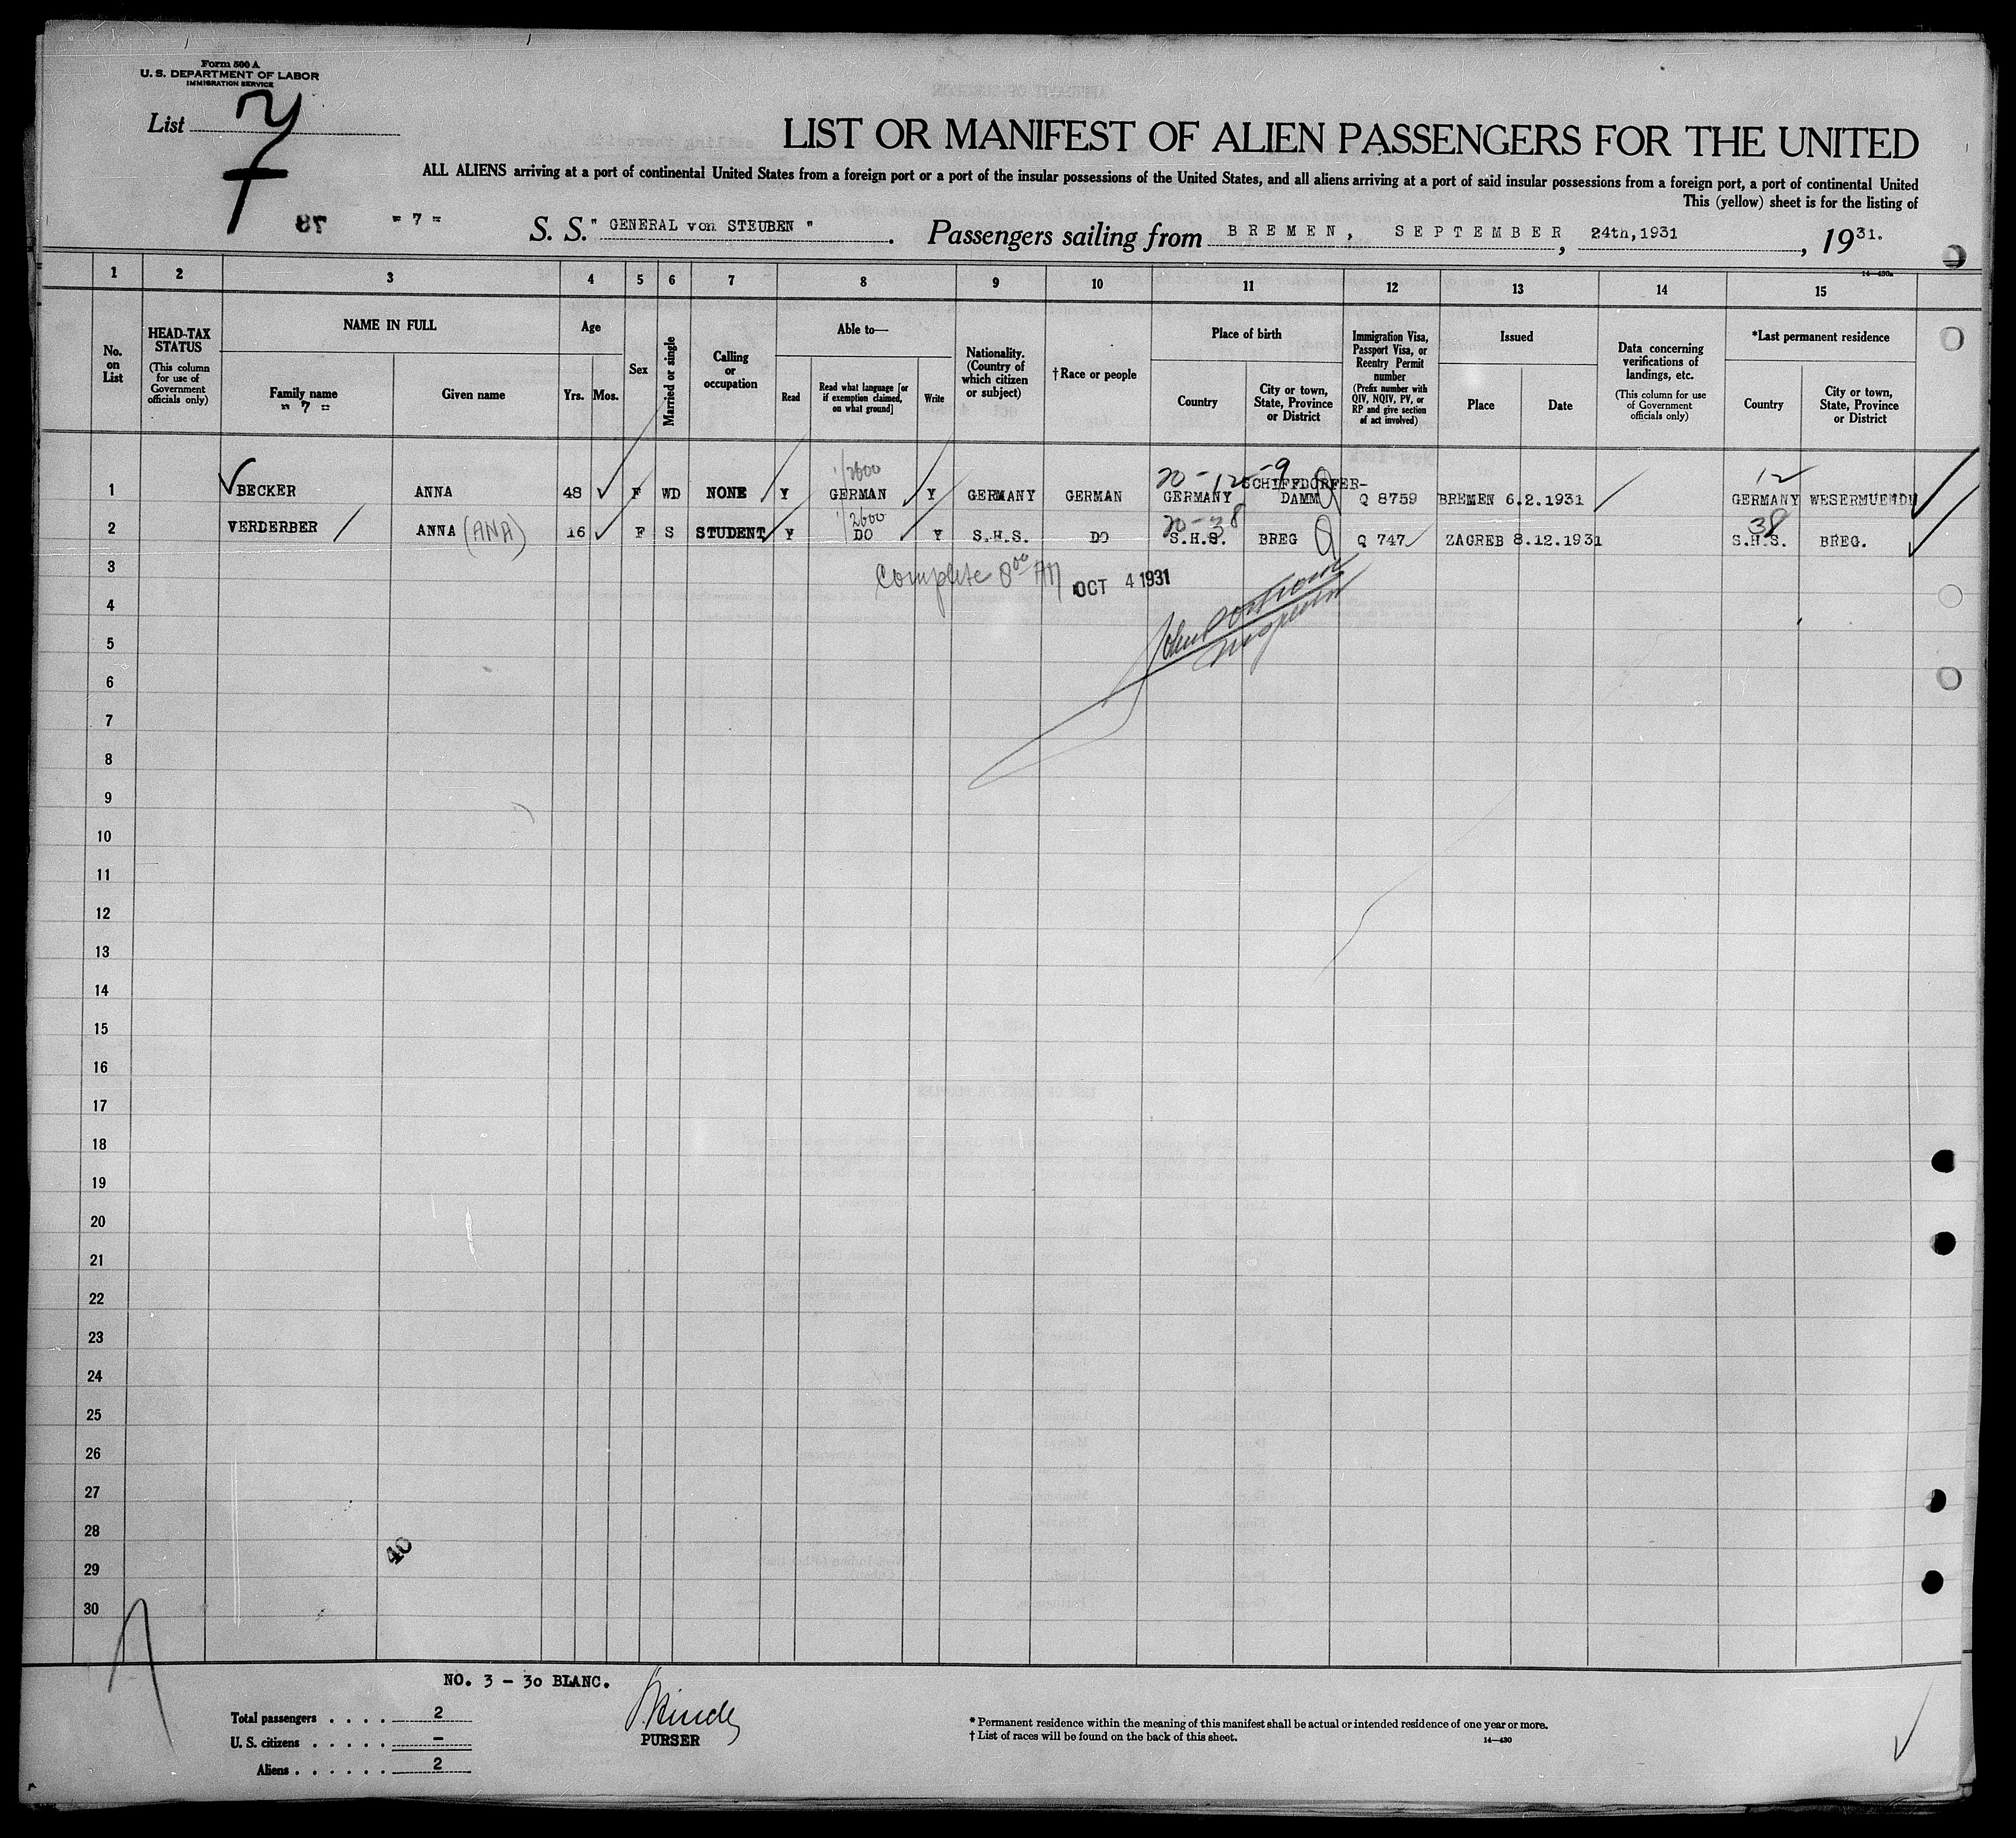 Form 500 A
U. S. DEPARTMENT OF LABOR
IMMIGRATION SERVICE
List 7
LIST OR MANIFEST OF ALIEN PASSENGERS FOR THE UNITED
ALL ALIENS arriving at a port of continental United States from a foreign port or a port of the insular possessions of the United States, and all aliens arriving at a port of said insular possessions from a foreign port, a port of continental United
This (yellow) sheet is for the listing of
78 = 7 = S. S. " GENERAL von STEUBEN " . Passengers sailing from BREMEN, SEPTEMBER , 24th,1931 , 1931.
14—430a
1 2 3 4 5 6 7 8 9 10 11 12 13 14 15
No. on List
HEAD-TAX STATUS (This column for use of Government officials only)
NAME IN FULL
Family name
= 7 =
Given name
Age
Yrs. Mos.
Sex
Married or single
Calling or occupation
Able to—
Read
Read what language [or if exemption claimed, on what ground]
Write
Nationality. (Country of which citizen or subject)
†Race or people
Place of birth
Country
City or town, State, Province or District
Immigration Visa, Passport Visa, or Reentry Permit number (Prefix number with QIV, NQIV, PV, or RP and give section of act involved)
Issued
Place
Date
Data concerning verifications of landings, etc. (This column for use of Government officials only)
*Last permanent residence
Country
City or town, State, Province or District
1/2600 20-12-9 12
1 BECKER ANNA 48 F WD NONE Y GERMAN Y GERMANY GERMAN GERMANY SCHIFFDORFER-DAMM Q Q 8759 BREMEN 6.2.1931 GERMANY WESERMUENDE
1/2600 20-38 38
2 VERDERBER ANNA (ANA) 16 F S STUDENT Y DO Y S.H.S. DO S.H.S. BREG Q Q 747 ZAGREB 8.12.1931 S.H.S. BREG.
3 Complete 8 00 AM OCT 4 1931
4
John
5 Inspector
6
7
8
9
10
11
12
13
14
15
16
17
18
19
20
21
22
23
24
25
26
27
28
40
29
30
NO. 3 - 30 BLANC.
Total passengers . . . . 2
U. S. citizens . . . . . -
Aliens . . . . . . 2
PURSER
* Permanent residence within the meaning of this manifest shall be actual or intended residence of one year or more.
† List of races will be found on the back of this sheet.
14—430